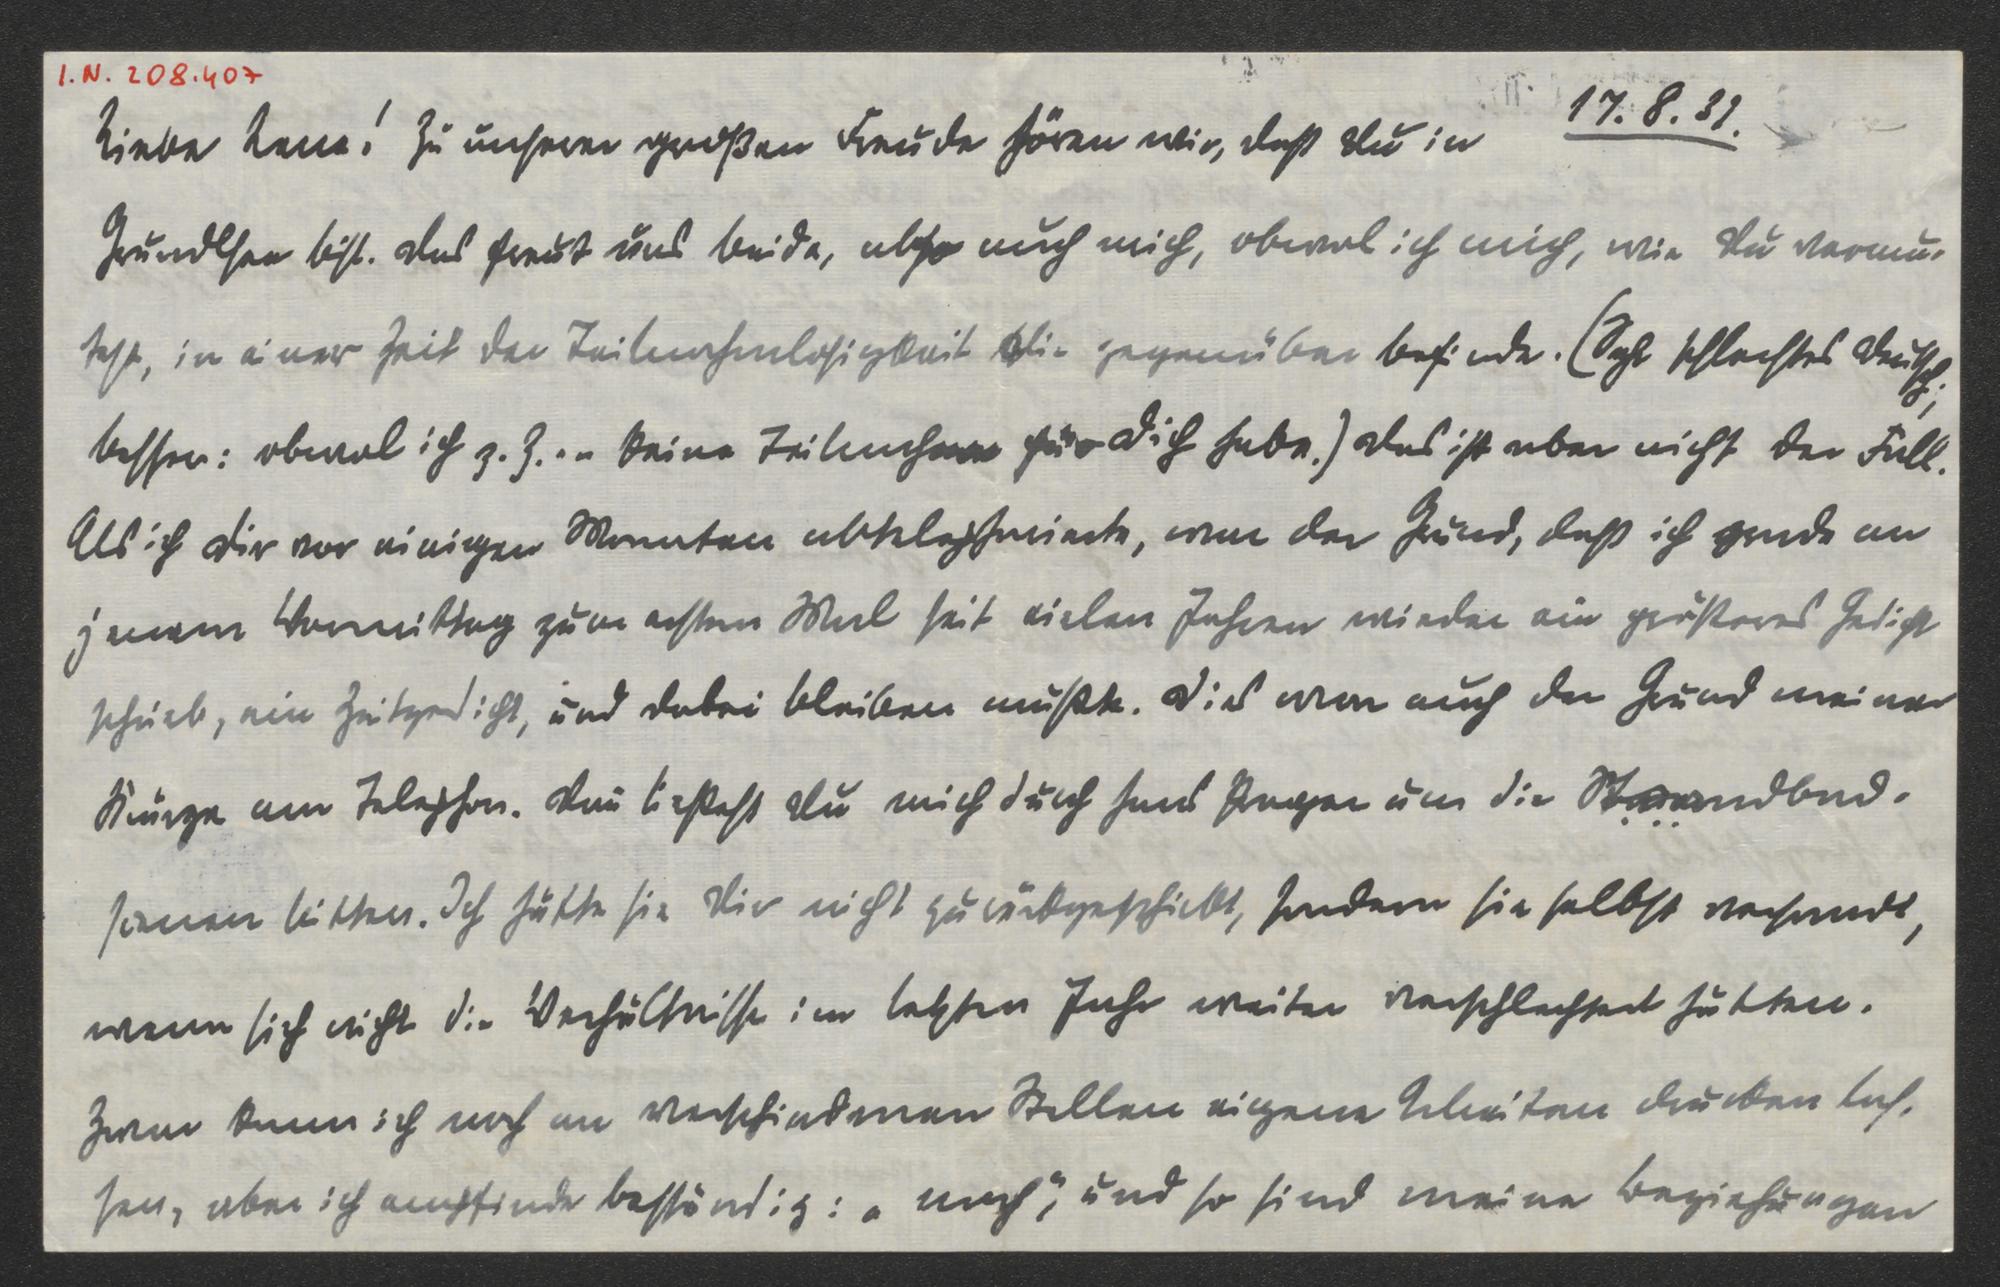 I.N. 208.407
17.8.31.
Liebe Lene! Zu unserer großen Freude hören wir, daß Du in
Grundlsee bist. Das freut uns beide, also auch mich, obwol ich mich, wie Du vermu-
test, in einer Zeit der Teilnahmslosigkeit Dir gegenüber befinde. (Sehr schlechtes Deutsch;
besser: obwol ich z. Z. keine Teilnahme für Dich habe.) Das ist aber nicht der Fall.
Als ich Dir vor einigen Monaten abtelephonierte, war der Grund, daß ich grade an
jenem Vormittag zum ersten Mal seit vielen Jahren wieder ein größeres Gedicht
schrieb, ein Zeitgedicht, und dabei bleiben mußte. Dies war auch der Grund meiner
Kürze am Telephon. Dau ließest Du mich durch Hans Prager um die Strandbad-
szenen bitten. Ich hätte sie Dir nicht zurückgeschickt, sondern sie selbst versandt,
wenn sich nicht die Verhältnisse im letzten Jahr weiter verschlechtert hätten.
Zwar kann ich noch an verschiedenen Stellen eigene Arbeiten drucken las-
sen, aber ich empfinde beständig: „noch“, und so sind meine Beziehungen